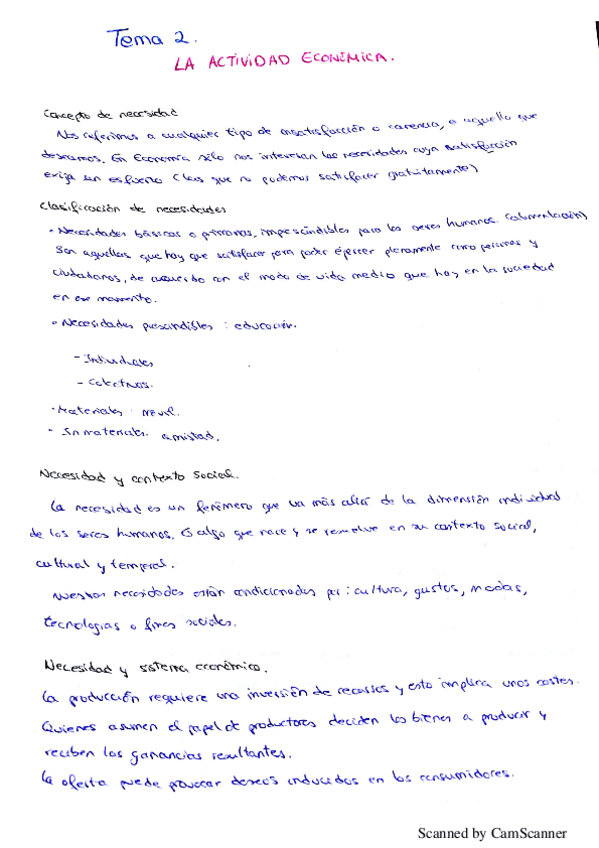 Tema 2.
LA ACTIVIDAD ECONÓMICA.
Concepto de necesidad
Nos referimos a cualquier tipo de insatisfacción o carencia, o aquello que
deseamos. En Economía sólo nos interesan las necesidades cuya satisfacción
exija un esfuerzo (las que no podemos satisfacer gratuitamente)
Clasificación de necesidades
• Necesidades básicas o primarias, imprescindibles para los seres humanos. (alimentación)
Son aquellas que hay que satisfacer para poder ejercer plenamente como personas y
ciudadanos, de acuerdo con el modo de vida medio que hay en la sociedad
en ese momento.
• Necesidades prescindibles : educación.
- Individuales
- Colectivas.
• Materiales : móvil.
• Inmateriales. amistad.
Necesidad y contexto social.
La necesidad es un fenómeno que va más allá de la dimensión individual
de los seres humanos. Es algo que nace y se resuelve en su contexto social,
cultural y temporal.
Nuestras necesidades están condicionadas por : cultura, gustos, modas,
tecnologías o fines sociales.
Necesidad y sistema económico.
La producción requiere una inversión de recursos y esto implica unos costes.
Quienes asumen el papel de productores deciden los bienes a producir y
reciben las ganancias resultantes.
La oferta puede provocar deseos inducidos en los consumidores.
Scanned by CamScanner